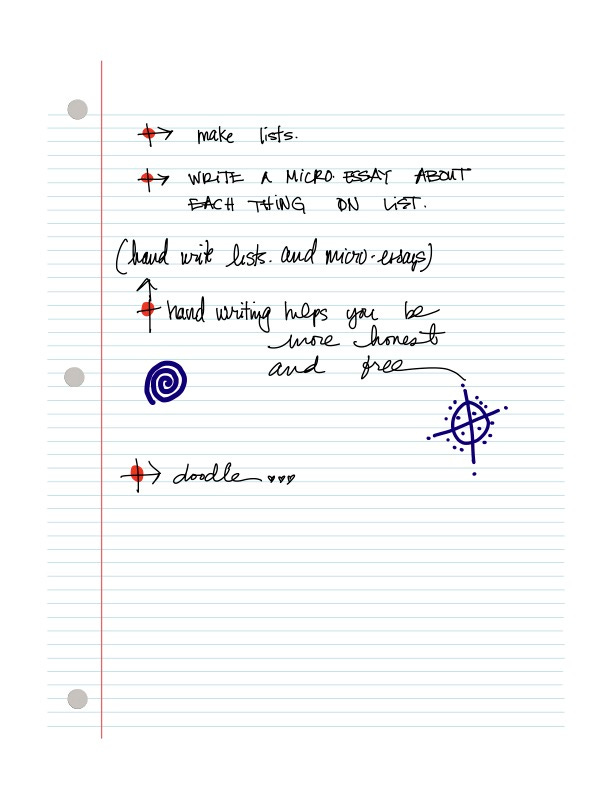 make lists.
WRITE A MICRO.ESSAY ABOUT
EACH THING ON LIST.
(hand write lists. and micro.essays)
hand writing helps you be
more honest
and free
doodle ♥♥♥